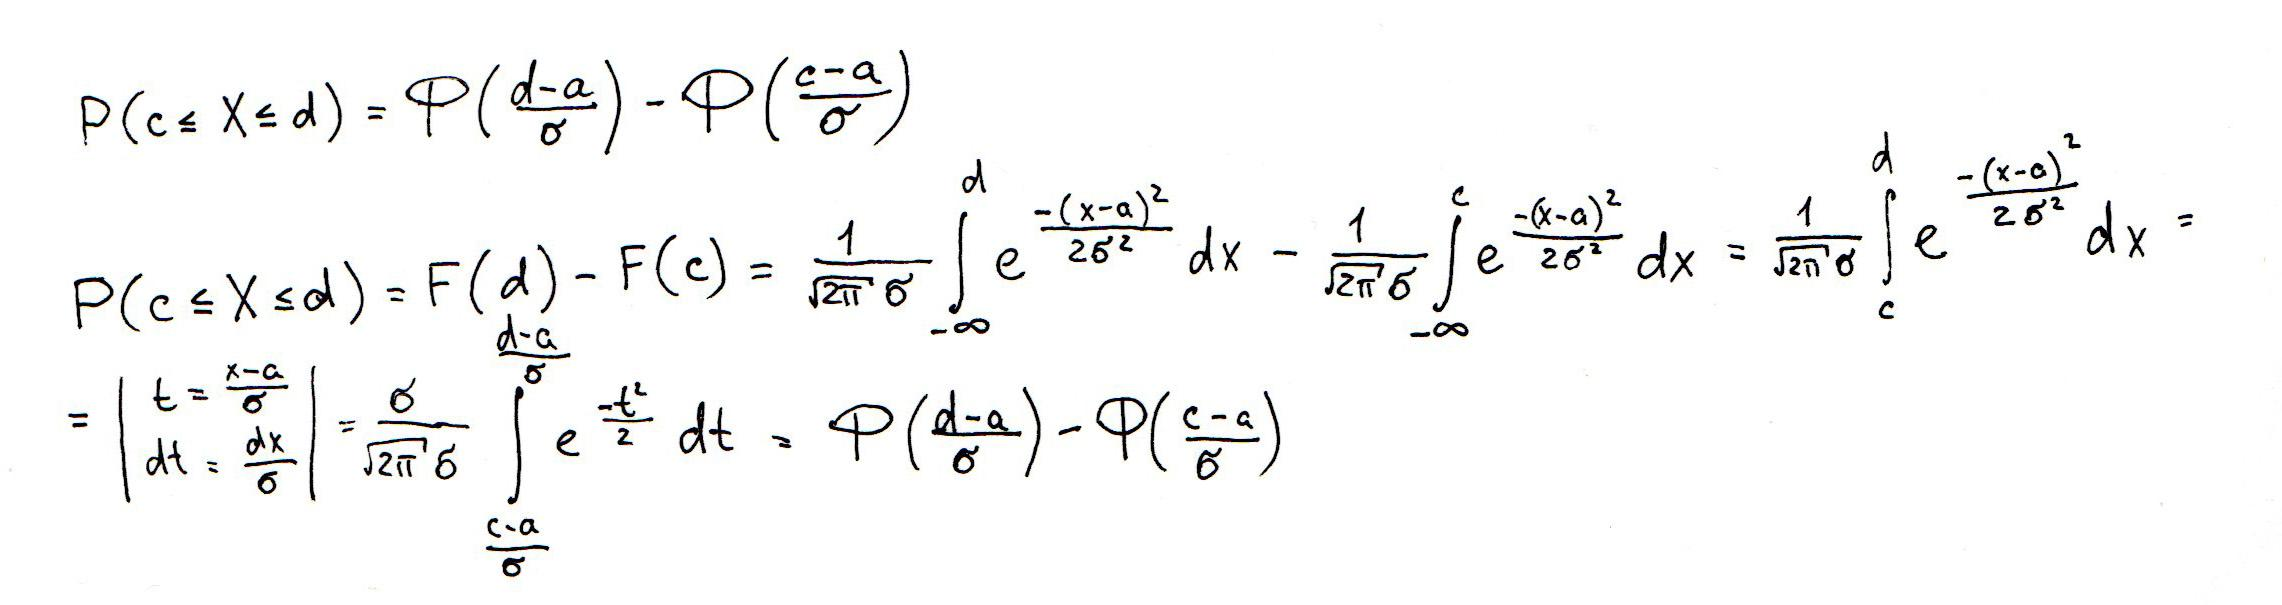 P(c ≤ X ≤ d) = Φ((d-a)/σ) - Φ((c-a)/σ)
P(c ≤ X ≤ d) = F(d) - F(c) = 1/(√(2π) σ) ∫_{-∞}^{d} e^{-(x-a)²/(2σ²)} dx - 1/(√(2π) σ) ∫_{-∞}^{c} e^{-(x-a)²/(2σ²)} dx = 1/(√(2π) σ) ∫_{c}^{d} e^{-(x-a)²/(2σ²)} dx =
= | t = (x-a)/σ, dt = dx/σ | = σ/(√(2π) σ) ∫_{(c-a)/σ}^{(d-a)/σ} e^{-t²/2} dt = Φ((d-a)/σ) - Φ((c-a)/σ)